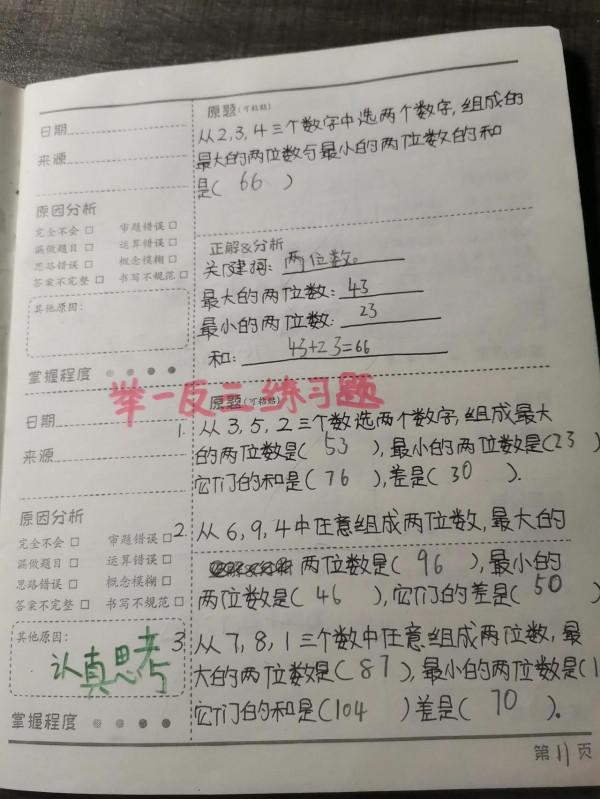 原题(可粘贴)
日期
从2,3,4三个数字中选两个数字,组成的
来源
最大的两位数与最小的两位数的和
是( 66 )
原因分析
完全不会 □ 审题错误 □
漏做题目 □ 运算错误 □
思路错误 □ 概念模糊 □
答案不完整 □ 书写不规范 □
其他原因:
掌握程度
正解&分析
关键词: 两位数。
最大的两位数: 43
最小的两位数: 23
和: 43+23=66
举一反三练习题
原题(可粘贴)
日期
来源
1. 从3,5,2三个数选两个数字,组成最大
的两位数是( 53 ),最小的两位数是(23)
它们的和是( 76 ),差是( 30 ).
原因分析
完全不会 □ 审题错误 □
漏做题目 □ 运算错误 □
思路错误 □ 概念模糊 □
答案不完整 □ 书写不规范 □
其他原因:
认真思考
掌握程度
2. 从6,9,4中任意组成两位数,最大的
两位数是( 96 ),最小的
两位数是( 46 ),它们的差是( 50 )
3. 从7,8,1三个数中任意组成两位数,最
大的两位数是( 87 ),最小的两位数是(1
它们的和是(104 )差是( 70 )。
第11页